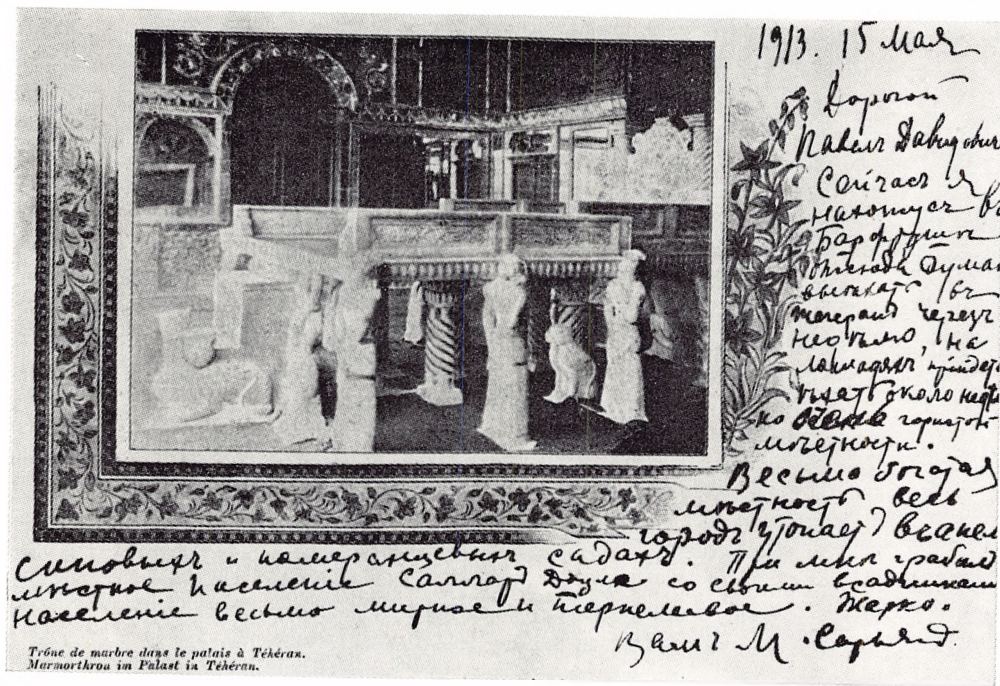 1913. 15 Мая
Дорогой
Павелъ Давидовичъ
Сейчасъ я
нахожусь въ
Барфрушѣ
отсюда думаю
выѣхать въ
Тегеранъ черезъ
на
лошадяхъ придется
ѣхать около недѣ
по очень гористой
мѣстности.
Весьма богатая
мѣстность весь
городъ утопаетъ въ апель
синовыхъ и померанцевыхъ садахъ. При мнѣ грабилъ
мѣстное населеніе Салларъ Доула со своими всадниками
населеніе весьма мирное и терпеливое. Жарко.
Вашъ М. Сарьянъ.
Trône de marbre dans le palais à Téhéran.
Marmorthron im Palast in Téhéran.